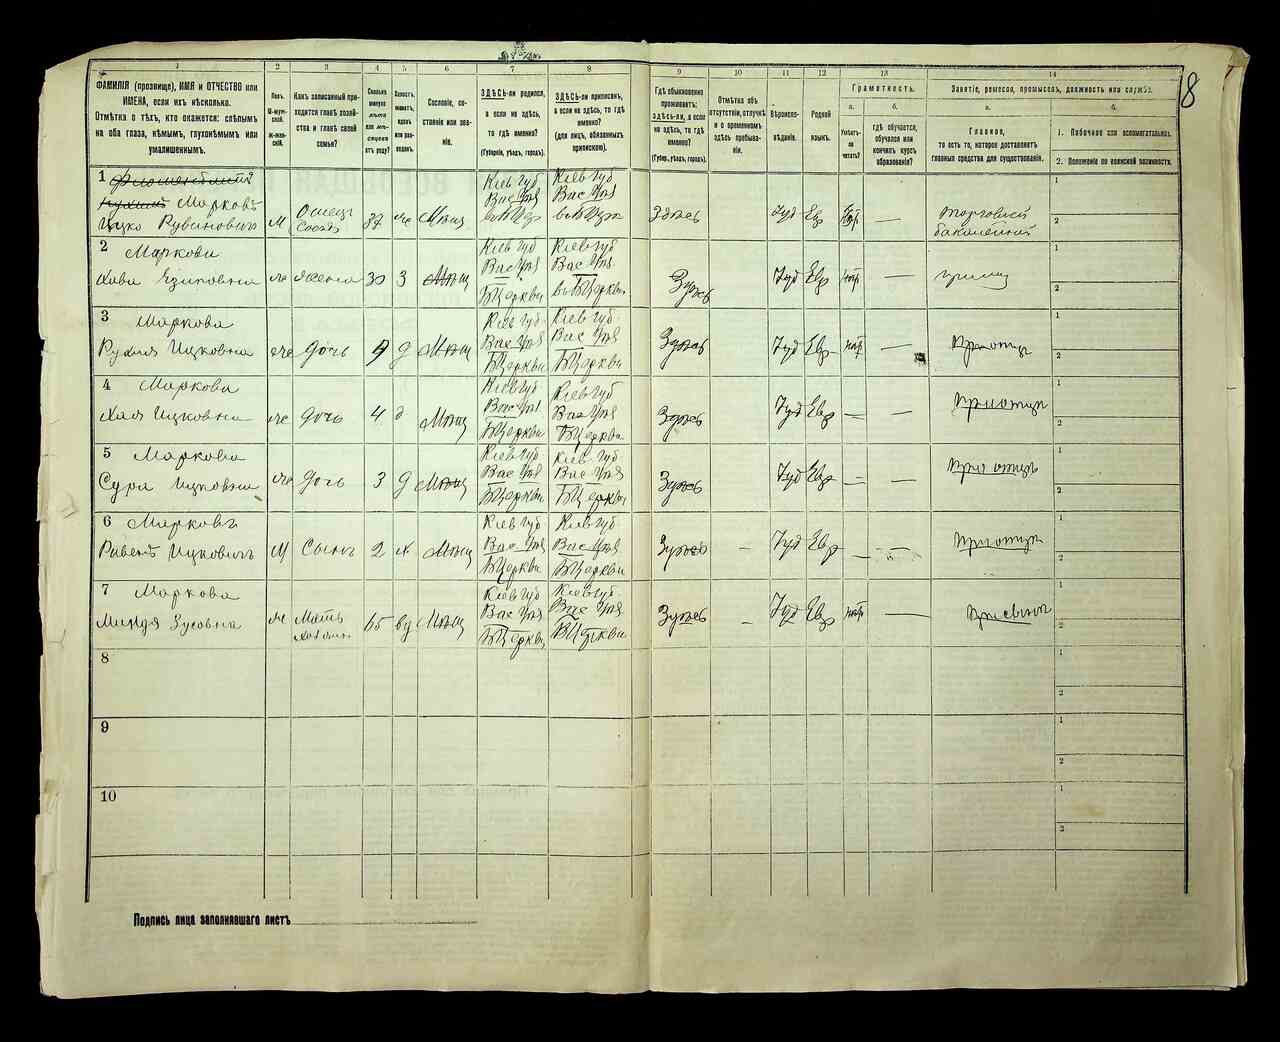 8
1
2
3
4
5
6
7
8
9
10
11
12
13
14
ФАМИЛІЯ (прозвище), ИМЯ и ОТЧЕСТВО или
ИМЕНА, если ихъ нѣсколько.
Отмѣтка о тѣхъ, кто окажется: слѣпымъ
на оба глаза, нѣмымъ, глухонѣмымъ или
умалишеннымъ.
Полъ.
М-муж-
ской.
ж-жен-
скій.
Какъ записанный при-
ходится главѣ хозяй-
ства и главѣ своей
семьи?
Сколько
минуло
лѣтъ
или мѣ-
сяцевъ
отъ роду?
Холостъ,
женатъ,
вдовъ
или раз-
веденъ.
Сословіе, со-
стояніе или зва-
ніе.
ЗДѢСЬ-ли родился,
а если не здѣсь,
то гдѣ именно?
(Губернія, уѣздъ, городъ).
ЗДѢСЬ-ли приписанъ,
а если не здѣсь, то гдѣ
именно?
(для лицъ, обязанныхъ
припискою).
Гдѣ обыкновенно
проживаетъ:
ЗДѢСЬ-ли, а если
не здѣсь, то гдѣ
именно?
(Губер., уѣздъ, городъ).
Отмѣтка объ
отсутствіи, отлучкѣ
и о временномъ
здѣсь пребыва-
ніи.
Вѣроиспо-
вѣданіе.
Родной
языкъ.
Грамотность.
а.
Умѣетъ-
ли
читать?
б.
гдѣ обучается,
обучался или
кончилъ курсъ
образованія?
Занятіе, ремесло, промыселъ, должность или служба.
а.
Главное,
то есть то, которое доставляетъ
главныя средства для существованія.
б.
1. Побочное или вспомогательное.
2. Положеніе по воинской повинности.
1 Марковъ
Ицко Рувиновичъ М 37 же Мѣщ Кіев Губ Вас Уѣз Кіев Губ Вас Уѣз Здѣсь Іуд Евр — торговлей бакалейной
2 Маркови
же жена 30 З Мѣщ Кіев Губ Вас Уѣз БЦеркви Кіев Губ Вас Уѣз БЦеркви Здѣсь Іуд Евр —
3 Маркова
Рухля Ицковна же дочь 9 д Мѣщ Кіев Губ Вас Уѣз БЦеркви Кіев Губ Вас Уѣз БЦеркви Здѣсь Іуд Евр — При отцѣ
4 Маркова
Хая Ицковна же дочь 4 д Мѣщ Кіев Губ Вас Уѣз БЦеркви Кіев Губ Вас Уѣз БЦеркви Здѣсь Іуд Евр — — При отцѣ
5 Маркова
Сура Ицковна же дочь 3 д Мѣщ Кіев Губ Вас Уѣз БЦеркви Кіев Губ Вас Уѣз БЦеркви Здѣсь Іуд Евр — — При отцѣ
6 Марковъ
Рувенъ Ицковичъ М Сынъ 2 х Мѣщ Кіев Губ Вас Уѣз БЦеркви Кіев Губ Вас Уѣз БЦеркви Здѣсь — Іуд Евр — — При отцѣ
7 Маркова
Миндя Зусовна же Мать 65 вд Мѣщ Кіев Губ Вас Уѣз БЦеркви Кіев Губ Вас Уѣз БЦеркви Здѣсь — Іуд Евр — При сынѣ
8
9
10
Подпись лица заполнявшаго листъ